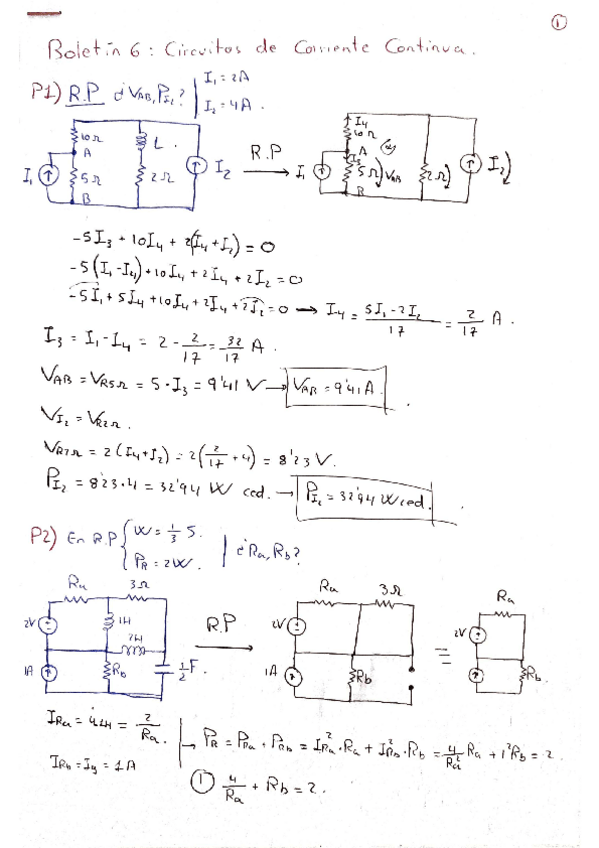 1
Boletín 6 : Circuitos de Corriente Continua.
P1) R.P ¿VAB, PI2? | I1 = 2A
I2 = 4A.
10Ω
A
5Ω
B
I1
L
2Ω
I2
R.P
I4
10Ω
A
I3
5Ω
VAB
B
I1
2Ω
I2
-5I3 + 10I4 + 2(I4+I2) = 0
-5(I1-I4) + 10I4 + 2I4 + 2I2 = 0
-5I1 + 5I4 + 10I4 + 2I4 + 2I2 = 0 → I4 = (5I1 - 2I2)/17 = 2/17 A.
I3 = I1 - I4 = 2 - 2/17 = 32/17 A.
VAB = VR5Ω = 5·I3 = 9'41 V → VAB = 9'41 A.
VI2 = VR2Ω.
VR2Ω = 2(I4+I2) = 2(2/17 + 4) = 8'23 V.
PI2 = 8'23·4 = 32'94 W ced. → PI2 = 32'94 W ced.
P2) En R.P { W = 1/3 J.
PR = 2W. | ¿Ra, Rb?
Ra
3Ω
2V
1H
2H
1A
Rb
1/2 F.
R.P
Ra
3Ω
2V
1A
Rb
Ra
2V
Rb
IRa = = 2/Ra
IRb = Ig = 1A
→ PR = PRa + PRb = IRa²·Ra + IRb²·Rb = 4/Ra² Ra + 1²Rb = 2
1 4/Ra + Rb = 2.